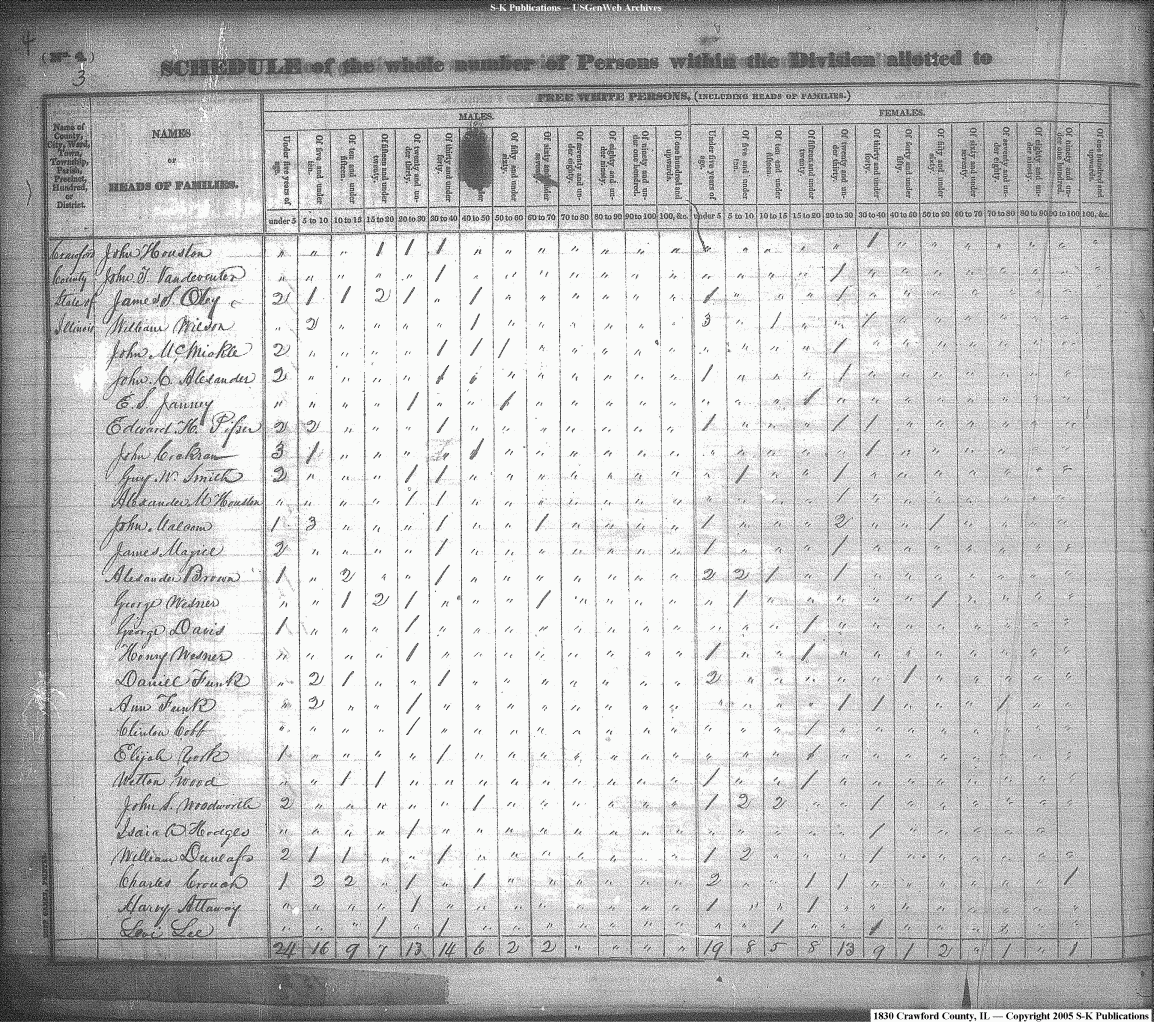 S-K Publications -- USGenWeb Archives
4
(No. 4)
3
SCHEDULE of the whole number of Persons within the Division allotted to
FREE WHITE PERSONS, (INCLUDING HEADS OF FAMILIES.)
MALES. FEMALES.
Name of County, City, Ward, Town, Township, Parish, Precinct, Hundred, or District.
NAMES
OF
HEADS OF FAMILIES.
under 5 5 to 10 10 to 15 15 to 20 20 to 30 30 to 40 40 to 50 50 to 60 60 to 70 70 to 80 80 to 90 90 to 100 100, &c. under 5 5 to 10 10 to 15 15 to 20 20 to 30 30 to 40 40 to 50 50 to 60 60 to 70 70 to 80 80 to 90 90 to 100 100, &c.
Crawford John Houston " " " 1 1 1 " " " " " " " " " " " " 1 " " " " " " "
County John T. Vandeventer " " " " " 1 " " " " " " " " " " " 1 " " " " " " " "
State of James S. Otey 2 1 1 2 1 " 1 " " " " " " 1 " " " 1 " " " " " " " "
Illinois William Wilson " 2 " " " " 1 " " " " " " 3 " 1 " " 1 " " " " " " "
John McMickle 2 " " " " 1 1 1 " " " " " " " " " 1 " " " " " " " "
John C. Alexander 2 " " " " 1 " " " " " " " 1 " " " 1 " " " " " " " "
E. S. Janney " " " " " " " 1 " " " " " " " " 1 " " " " " " " " "
Edward H. Pifser 2 2 " " " 1 " " " " " " " 1 " " " 1 1 " " " " " " "
John Cockran 3 1 " " " " 1 " " " " " " " " " " " 1 " " " " " " "
Guy W. Smith 2 " " " 1 1 " " " " " " " " 1 " " 1 " " " " " " " "
Alexander M Houston " " " " 1 1 " " " " " " " " " " " 1 " " " " " " " "
John Malcom 1 3 " " " 1 " " 1 " " " " 1 " " " 2 " " 1 " " " " "
James Magice 2 " " " " 1 " " " " " " " 1 " " " 1 " " " " " " " "
Alexander Brown 1 " 2 " " 1 " " " " " " " 2 2 1 " 1 " " " " " " " "
George Wesner " " 1 2 1 " " " 1 " " " " " 1 " " " " " 1 " " " " "
George Davis 1 " " " 1 " " " " " " " " " " " 1 " " " " " " " " "
Henry Wesner " " " " 1 " " " " " " " " 1 " " 1 " " " " " " " " "
Daniel Funk " 2 1 " " 1 " " " " " " " 2 " " " " " 1 " " " " " "
Ann Funk " 2 " " 1 " " " " " " " " " " " " 1 1 " " " 1 " " "
Clinton Cobb " " " " 1 " " " " " " " " " " " 1 " " " " " " " " "
Elijah York 1 " " " " 1 " " " " " " " " " " 1 " " " " " " " " "
Wetton Wood " " 1 1 " " " " " " " " " 1 " " 1 " " " " " " " " "
John S. Woodworth 2 " " " " " 1 " " " " " " 1 2 2 " " 1 " " " " " " "
Isaia D Hodges " " " " 1 " " " " " " " " " " " " " 1 " " " " " " "
William Dunlap 2 1 1 " " 1 " " " " " " " 1 2 " " " 1 " " " " " " "
Charles Crouch 1 2 2 " 1 " 1 " " " " " " 2 " " 1 1 " " " " " " 1 "
Harvy Attaway " " " " 1 " " " " " " " " 1 " " 1 " " " " " " " " "
Levi Lee " " " 1 " 1 " " " " " " " " " 1 " " 1 " " " " " " "
24 16 9 7 13 14 6 2 2 " " " " 19 8 5 8 13 9 1 2 " 1 " 1
1830 Crawford County, IL — Copyright 2005 S-K Publications